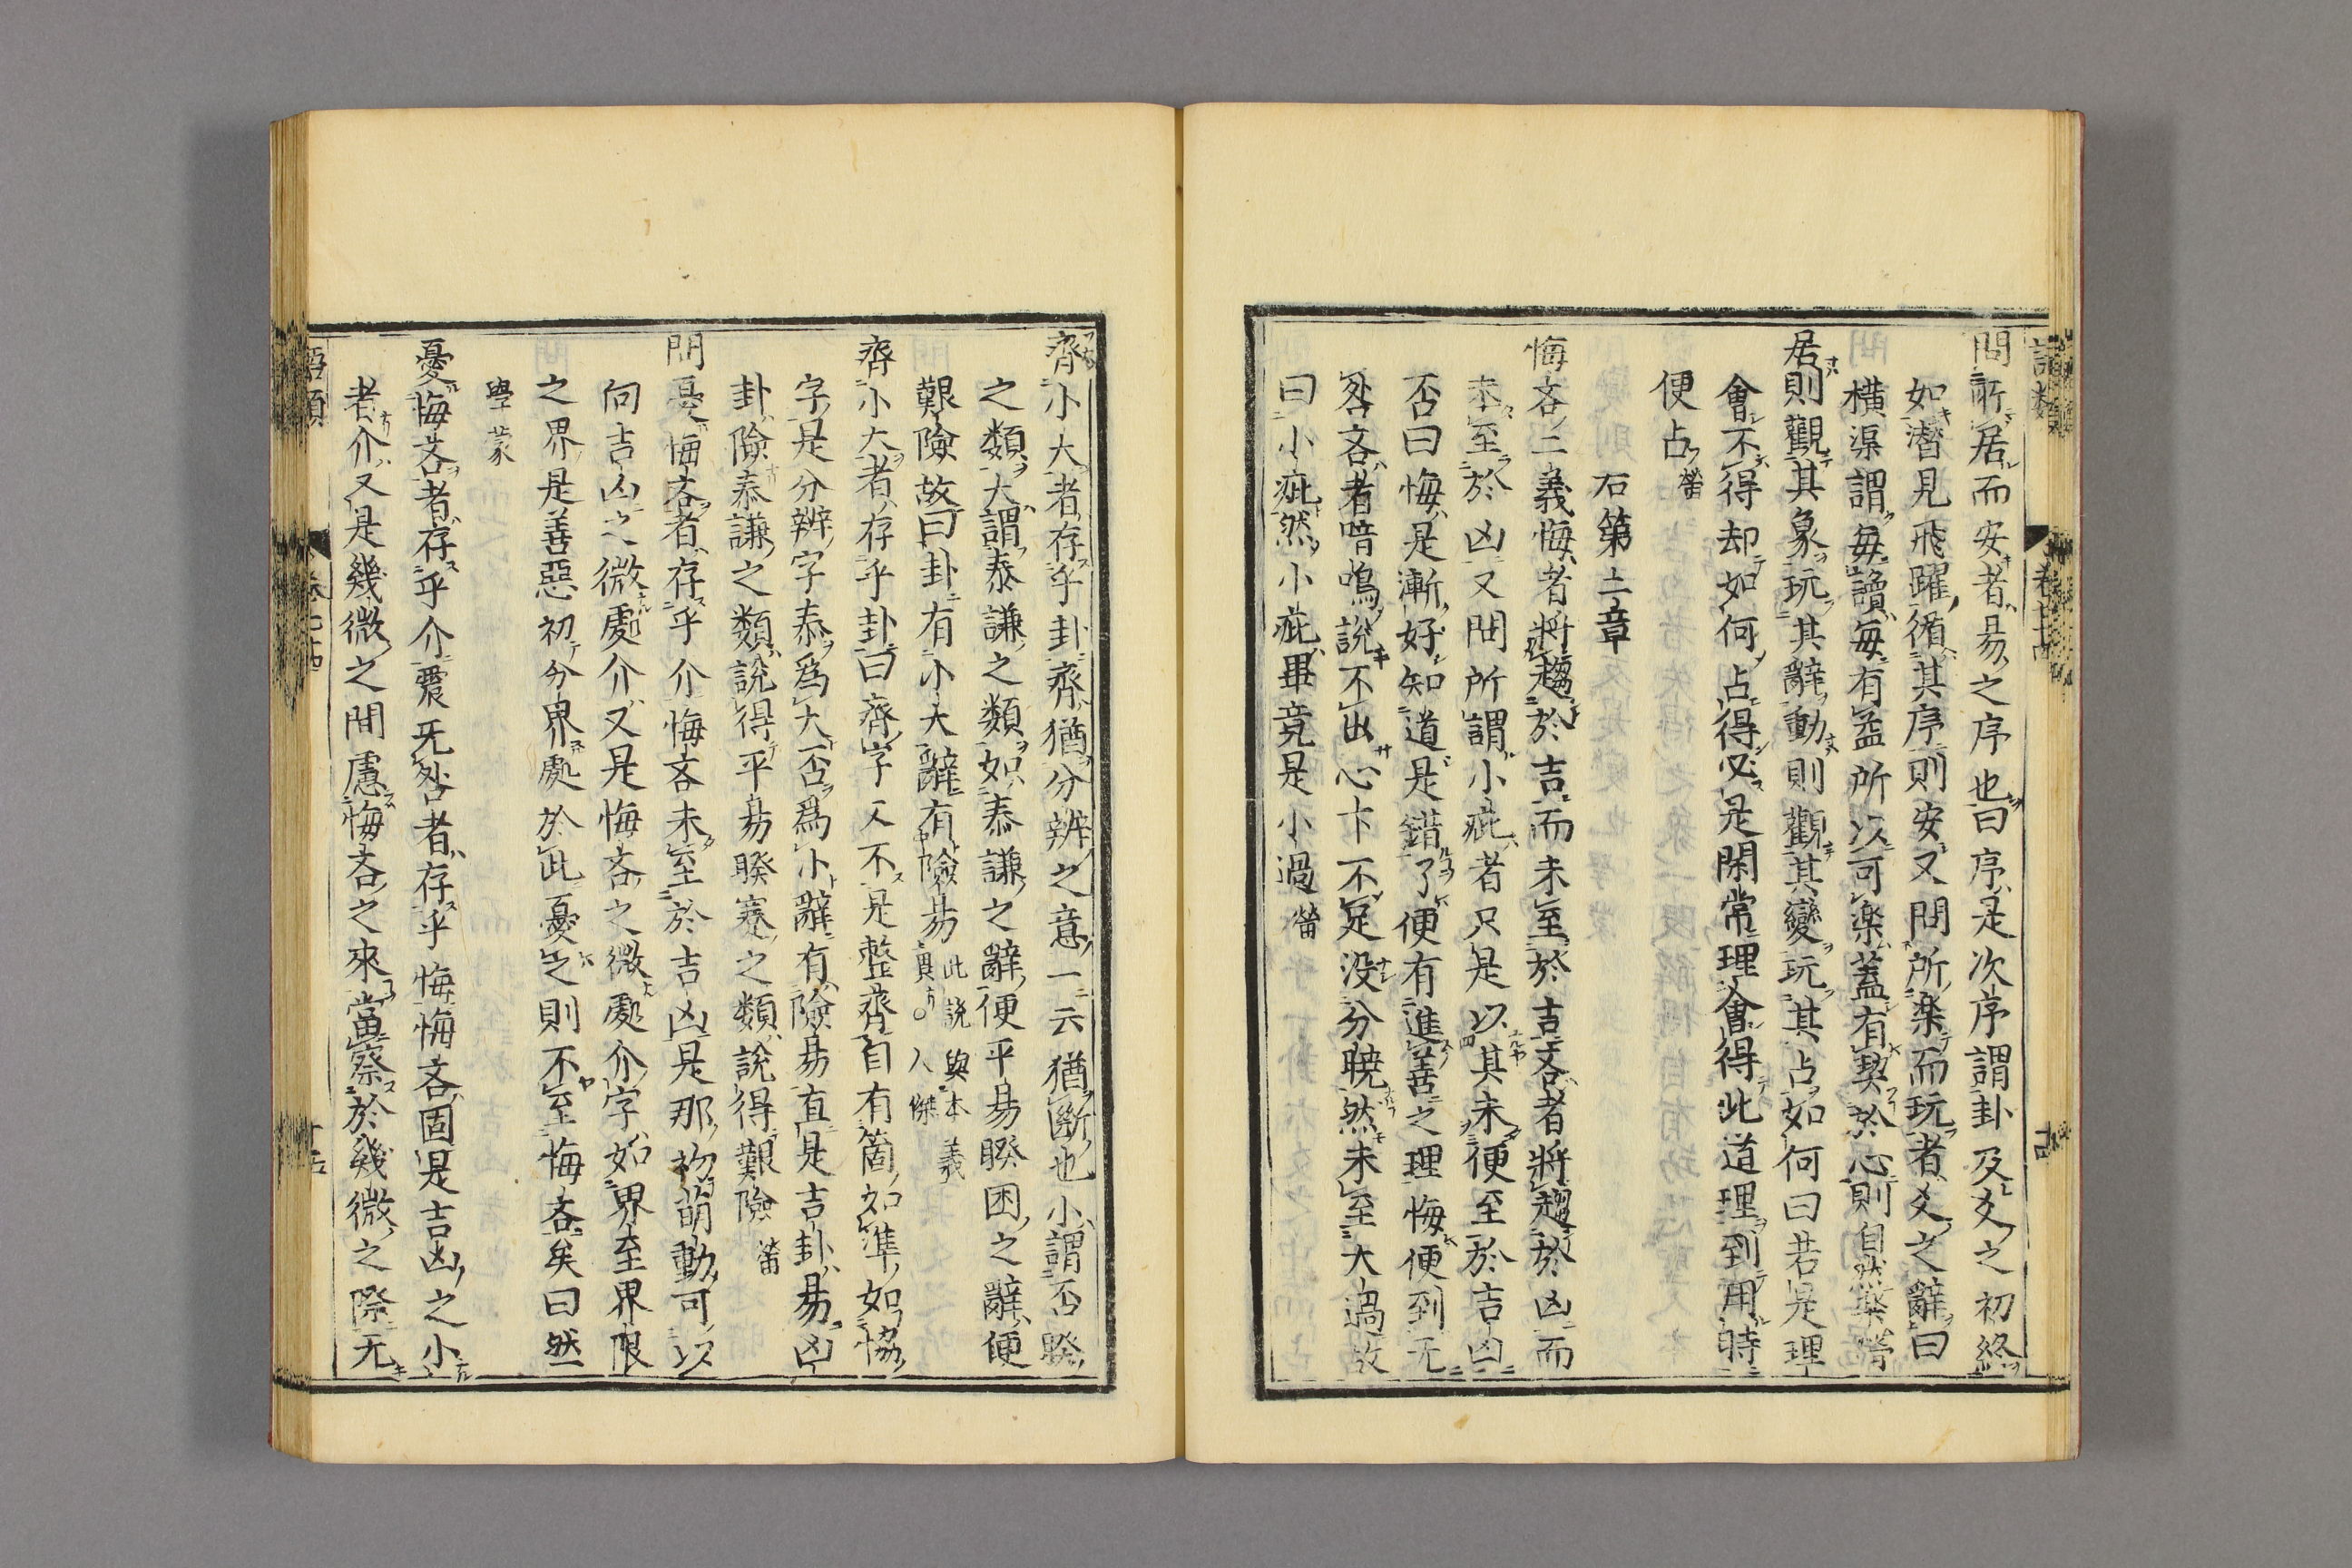 問所居而安者易之序也曰序是次序謂卦及爻之初終
如潛見飛躍循其序則安又問所楽而玩者爻之辭曰
橫渠謂每讀每有益所以可楽蓋有契於心則自然楽㽦
居則觀其象玩其辭動則觀其變玩其占如何曰若是理
會不得却如何占得必是閑常理會得此道理到用時
便占㽦
右第二章
悔吝二義悔者將趨於吉而未至於吉吝者將趨於凶而
未至於凶又問所謂小疵者只是以其未便至於吉凶
否曰悔是漸好知道是錯了便有進善之理悔便到无
咎吝者喑嗚說不出心下不足没分曉然未至大過故
曰小疵然小疵畢竟是小過㽦
齊小大者存乎卦齊猶分辨之意一云猶斷也小謂否睽
之類大謂泰謙之類如泰謙之辭便平易睽困之辭便
艱險故曰卦有小大辭有險易此說與本義異〇人傑
齊小大者存乎卦曰齊字又不是整齊自有箇如準如協
字是分辨字泰爲大否爲小辭有險易直是吉卦易凶
卦險泰謙之類說得平易睽蹇之類說得艱險㽦
問憂悔吝者存乎介悔吝未至於吉凶是那初萌動可以
向吉凶之微處介又是悔吝之微處介字如界至界限
之界是善惡初分界處於此憂之則不至悔吝矣曰然
學蒙
憂悔吝者存乎介震无咎者存乎悔悔吝固是吉凶之小
者介又是幾微之間慮悔吝之來當察於幾微之際无